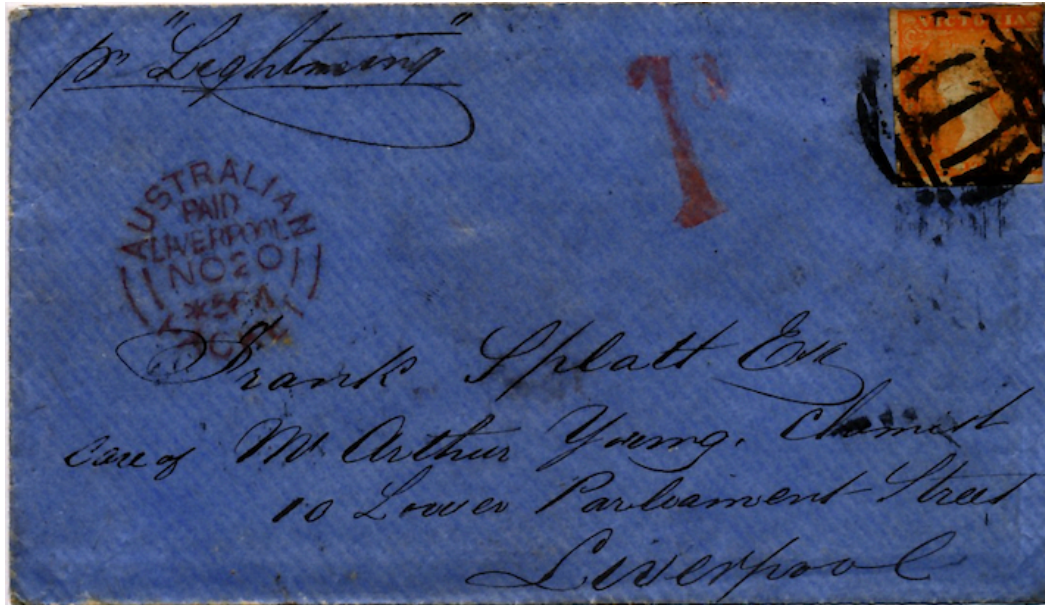 pr "Lightning"
VICTORIA
1d
AUSTRALIAN
PAID
LIVERPOOL
NO 20
PACKET
Frank Splatt Esq
Care of Mr Arthur Young. Chemist
10 Lower Parliament Street
Liverpool